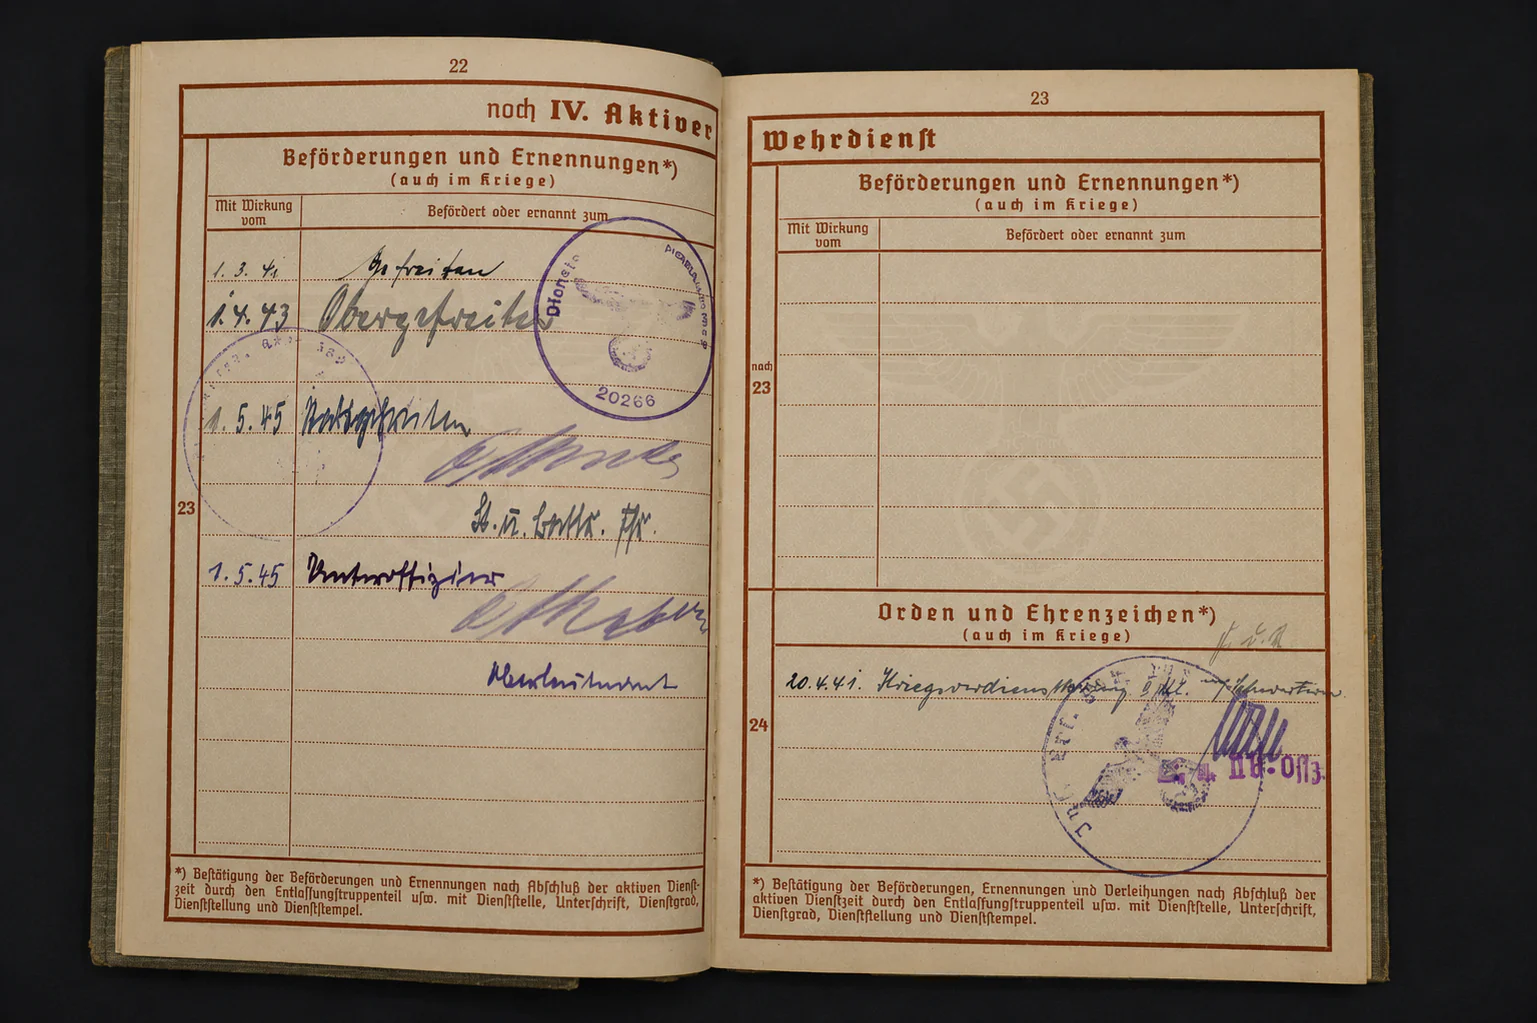 22
noch IV. Aktiver
Beförderungen und Ernennungen*)
(auch im Kriege)
Mit Wirkung
vom
Befördert oder ernannt zum
1. 3. 41 Gefreiten
1. 4. 43 Obergefreiten
Dienstst
20266
1. 5. 45 Stabsgefreiten
St. u. Battr. Fhr.
23
1. 5. 45 Unteroffizier
Oberleutnant
*) Bestätigung der Beförderungen und Ernennungen nach Abschluß der aktiven Dienst-
zeit durch den Entlassungstruppenteil usw. mit Dienststelle, Unterschrift, Dienstgrad,
Dienststellung und Dienststempel.
23
Wehrdienst
Beförderungen und Ernennungen*)
(auch im Kriege)
Mit Wirkung
vom
Befördert oder ernannt zum
noch
23
Orden und Ehrenzeichen*)
(auch im Kriege)
20. 4. 41. Kriegsverdienstkreuz II. Kl. mit Schwertern
24
*) Bestätigung der Beförderungen, Ernennungen und Verleihungen nach Abschluß der
aktiven Dienstzeit durch den Entlassungstruppenteil usw. mit Dienststelle, Unterschrift,
Dienstgrad, Dienststellung und Dienststempel.